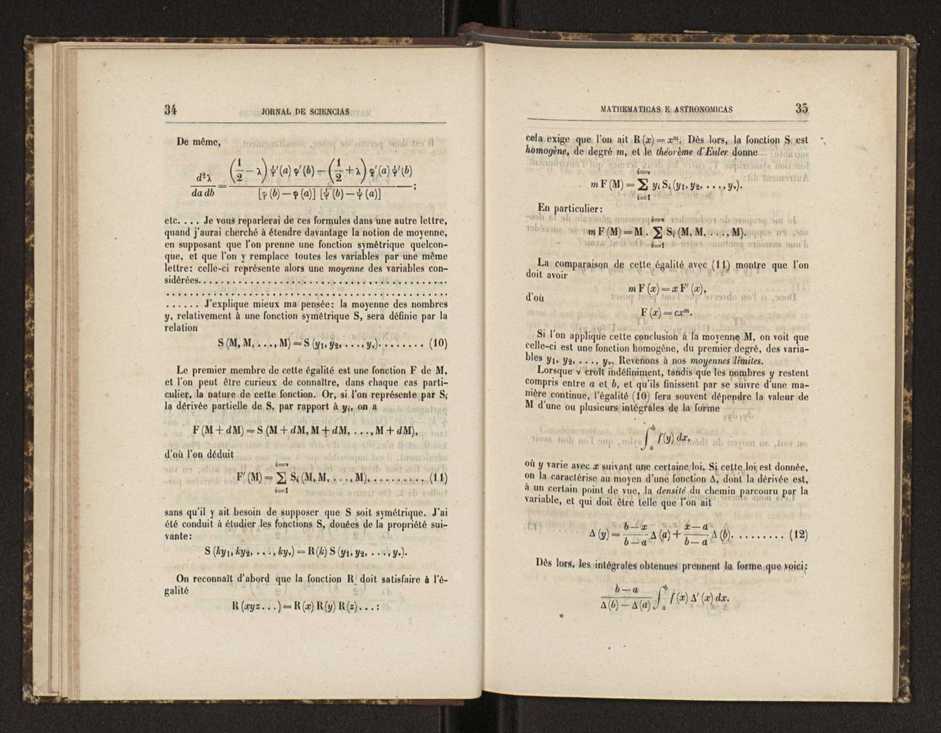 34 JORNAL DE SCIENCIAS
De même,
d²λ/(da db) = [(1/2 − λ) ψ′(a) φ′(b) − (1/2 + λ) φ′(a) ψ′(b)] / [φ(b) — φ(a)] [ψ(b) — ψ(a)] ;
etc. . . . Je vous reparlerai de ces formules dans une autre lettre,
quand j'aurai cherché à étendre davantage la notion de moyenne,
en supposant que l'on prenne une fonction symétrique quelcon-
que, et que l'on y remplace toutes les variables par une même
lettre: celle-ci représente alors une moyenne des variables con-
sidérées. . . . . . . . . . . . . . . . . . . . . . . . . . . . . . . . . . . . .
. . . . . . . . . . . . . . . . . . . . . . . . . . . . . . . . . . . . . . . . . . . . .
. . . . . . J'explique mieux ma pensée: la moyenne des nombres
y, relativement à une fonction symétrique S, sera définie par la
relation
S (M, M, . . ., M) = S (y₁, y₂, . . . ., yᵥ). . . . . . . . (10)
Le premier membre de cette égalité est une fonction F de M,
et l'on peut être curieux de connaître, dans chaque cas parti-
culier, la nature de cette fonction. Or, si l'on représente par Sᵢ
la dérivée partielle de S, par rapport à yᵢ, on a
F (M + dM) = S (M + dM, M + dM, . . ., M + dM),
d'où l'on déduit
F′ (M) = Σ_{i=1}^{i=ν} Sᵢ (M, M, . . . ., M). . . . . . . . . . (11)
sans qu'il y ait besoin de supposer que S soit symétrique. J'ai
été conduit à étudier les fonctions S, douées de la propriété sui-
vante:
S (ky₁, ky₂, . . . , kyᵥ) = R (k) S (y₁, y₂, . . ., yᵥ).
On reconnaît d'abord que la fonction R doit satisfaire à l'é-
galité
R (xyz . . .) = R (x) R (y) R (z). . . :
MATHEMATICAS E ASTRONOMICAS 35
cela exige que l'on ait R (x) = xᵐ. Dès lors, la fonction S est
homogène, de degré m, et le théorème d'Euler donne
m F (M) = Σ_{i=1}^{i=ν} yᵢ Sᵢ (y₁, y₂, . . . ., yᵥ).
En particulier:
m F (M) = M . Σ_{i=1}^{i=ν} Sᵢ (M, M, . . . ., M).
La comparaison de cette égalité avec (11) montre que l'on
doit avoir
m F (x) = x F′ (x),
d'où
F (x) = cxᵐ.
Si l'on applique cette conclusion à la moyenne M, on voit que
celle-ci est une fonction homogène, du premier degré, des varia-
bles y₁, y₂, . . . ., yᵥ. Revenons à nos moyennes limites.
Lorsque ν croît indéfiniment, tandis que les nombres y restent
compris entre a et b, et qu'ils finissent par se suivre d'une ma-
nière continue, l'égalité (10) fera souvent dépendre la valeur de
M d'une ou plusieurs intégrales de la forme
∫ₐᵇ f(y) dx,
où y varie avec x suivant une certaine loi. Si cette loi est donnée,
on la caractérise au moyen d'une fonction Δ, dont la dérivée est,
à un certain point de vue, la densité du chemin parcouru par la
variable, et qui doit être telle que l'on ait
Δ (y) = (b — x)/(b — a) Δ (a) + (x — a)/(b — a) Δ (b). . . . . . . . . (12)
Dès lors, les intégrales obtenues prennent la forme que voici:
(b — a)/(Δ (b) — Δ (a)) ∫ₐᵇ f (x) Δ′ (x) dx.